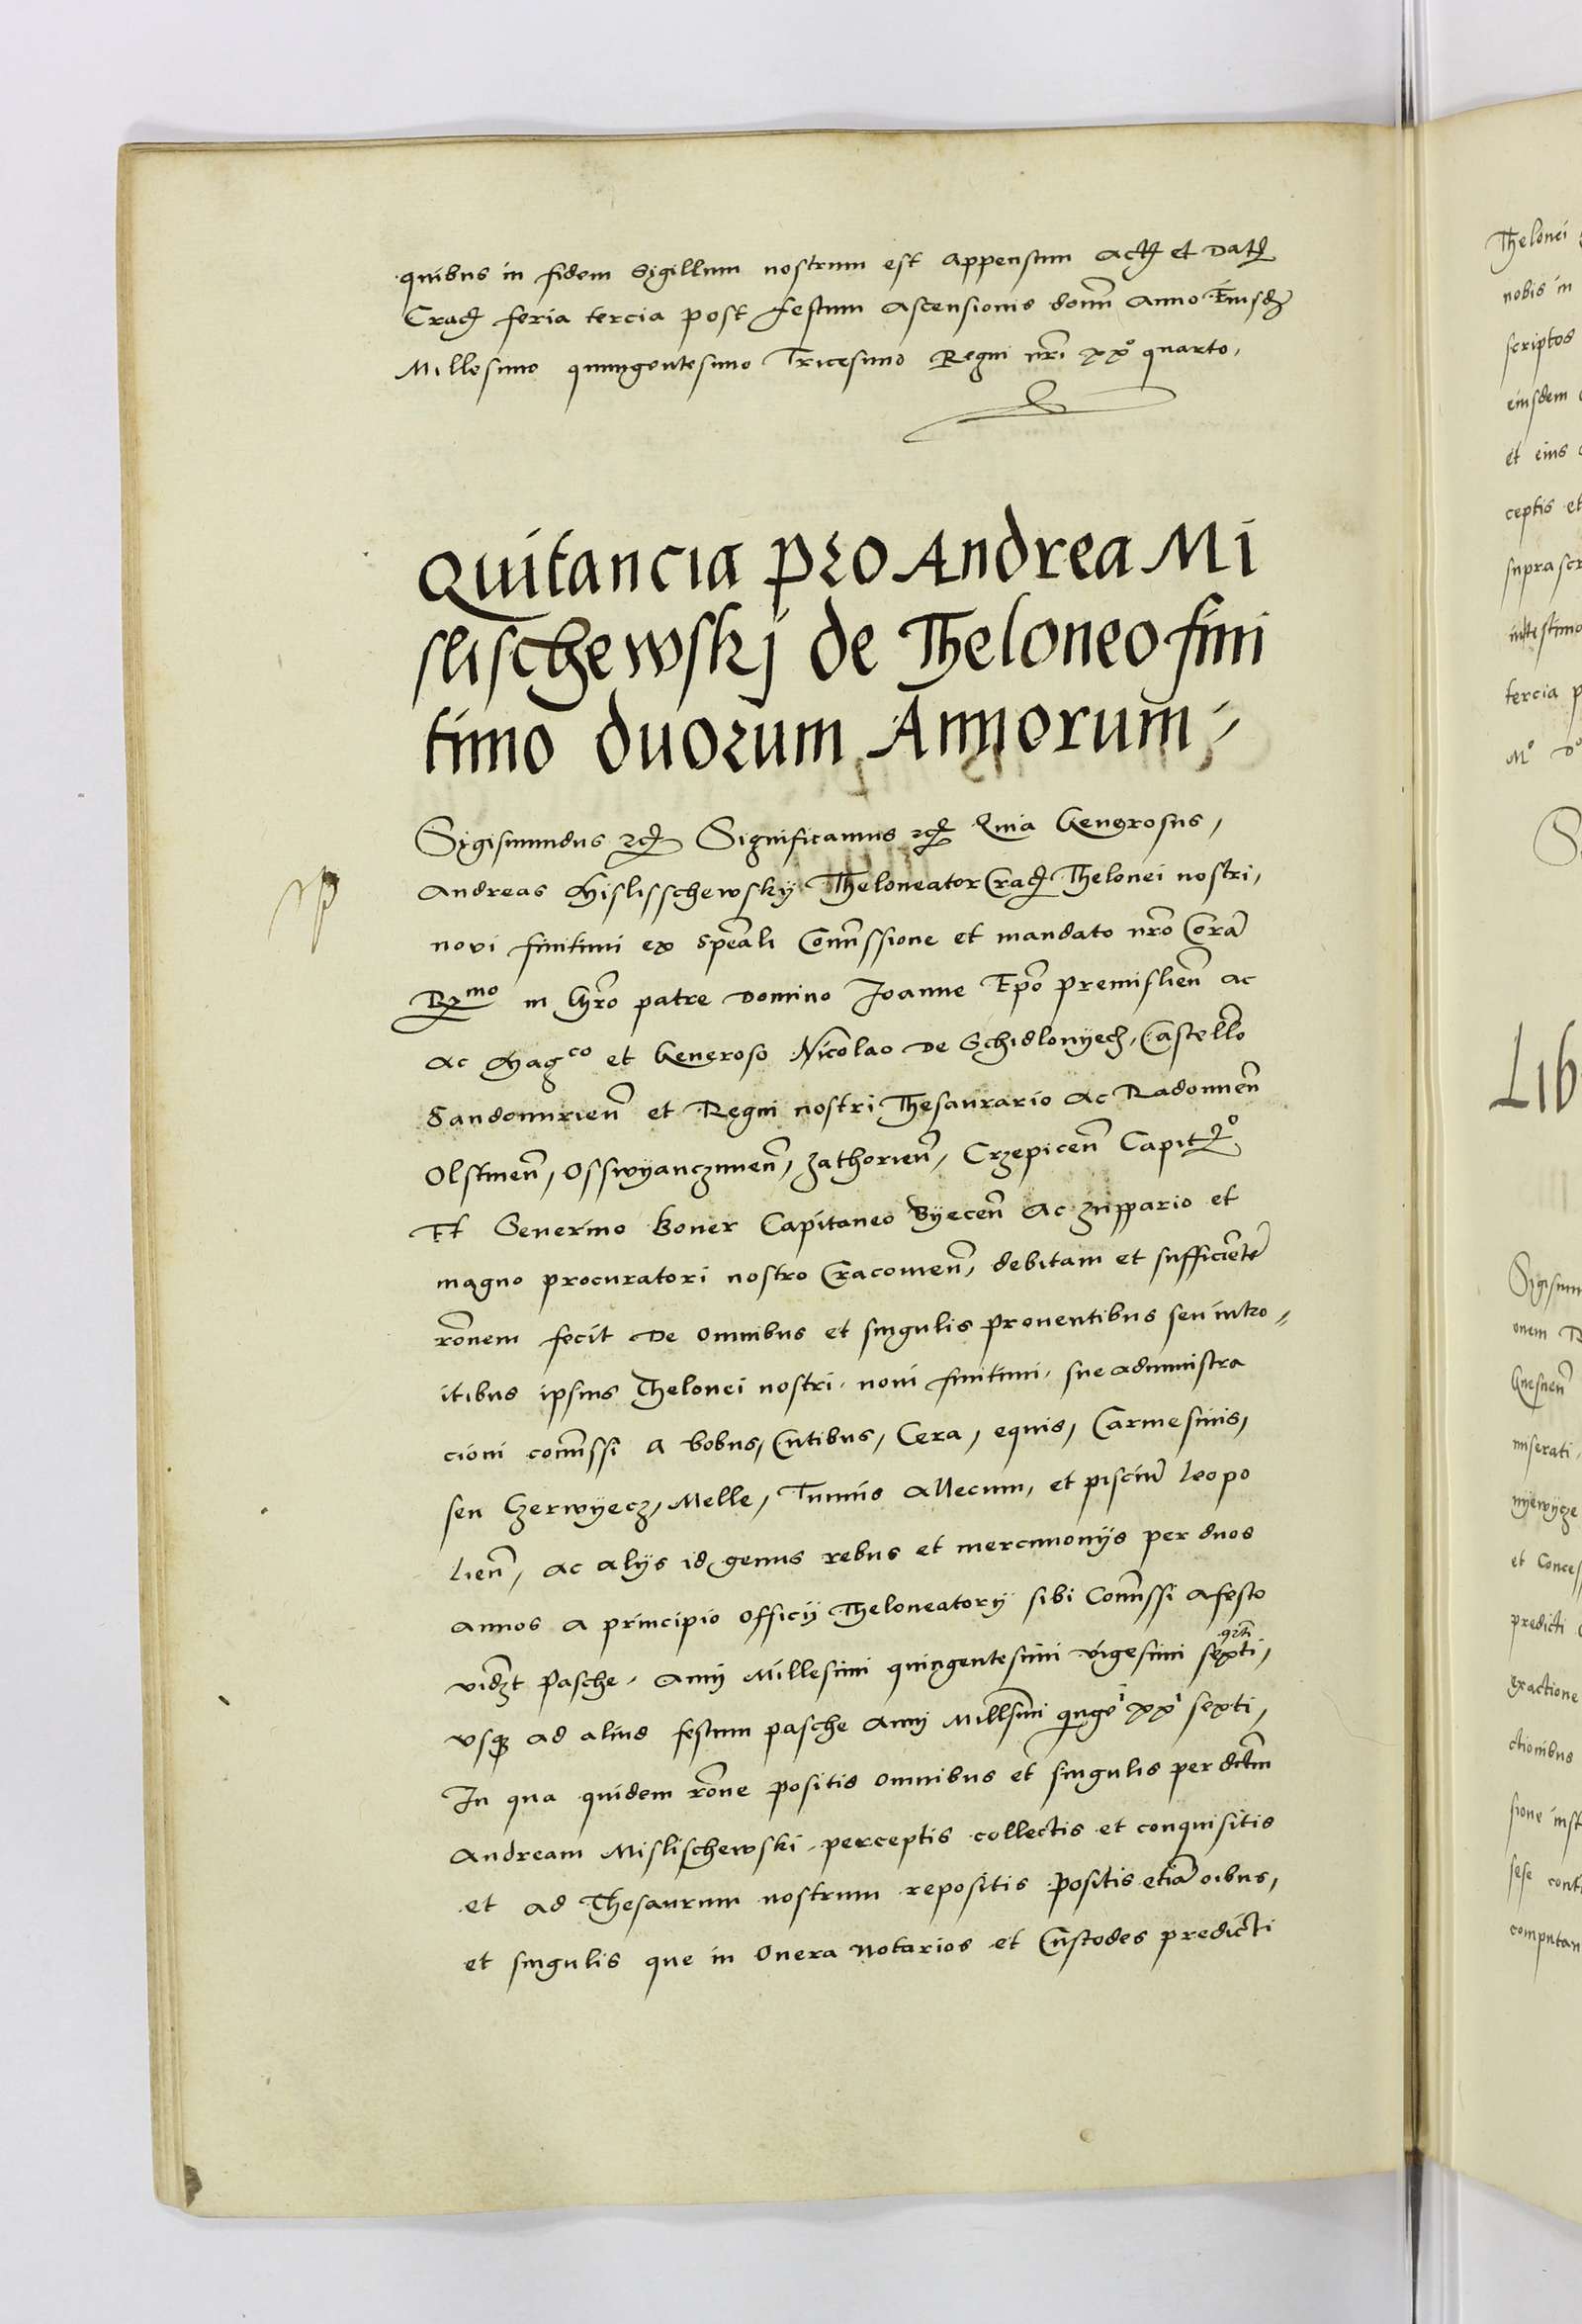 quibus in fidem Sigillum nostrum est appensum Act et Dat
Crac feria tercia post festum Ascensionis domn Anno Eiusd
Millesimo quingentesimo Tricesimo Regni nri xxº quarto,
Quitancia pro Andrea Mi
slischewskj de Theloneo fini
timo duorum Annorum
Sigismundus Significamus Quia Generosus,
Andreas Mislisschewsky Theloneator Crac Thelonei nostri,
novi finitimi ex speali Comissione et mandato nro Cora
Rmo in Chro patre Domino Joanne Epo premislien ac
ac Magco et Generoso Nicolao de Schidlowyecz, Castello
Sandomirien et Regni nostri Thesaurario ac Radomien
Olstinen, Osswyanczimen, Zathorien, Crzepicen Capit º
Et Severino Boner Capitaneo Byecen ac zuppario et
magno procuratori nostro Cracovien, debitam et sufficiente
ronem fecit de omnibus et singulis proventibus seu intro-
itibus ipsius Thelonei nostri novi finitimi sue administra
cioni comissi a bobus, Cutibus, Cera, equis, Carmesinis,
seu Czerwyecz, Melle, Tunnis allecum, et pisciu leopo
lien, ac alys id genus rebus et mercimonys per duos
annos a principio officij Theloneatory sibi Comissi a festo
videt Pasche, Anni Millesimi quingentesimi vigesimi sexti,
qrti
usq ad aliud festum pasche Anni Millsimi qingeⁱ xxⁱ sexti,
In qua quidem rone positis omnibus et singulis per dictm
Andream Mislischewski perceptis collectis et conquisitis
et ad Thesaurum nostrum repositis positis etia oibus,
et singulis que in Onera Notarios et Custodes predicti
Thelonei
nobis in
scriptos
eiusdem
et eius
ceptis et
suprascr
tercia p
Mº Dº
Lib
Sigism
onem
Gnesnen
miserati
et Conces
predicti
exactione
ctionibus
sione inst
sese cont
computan